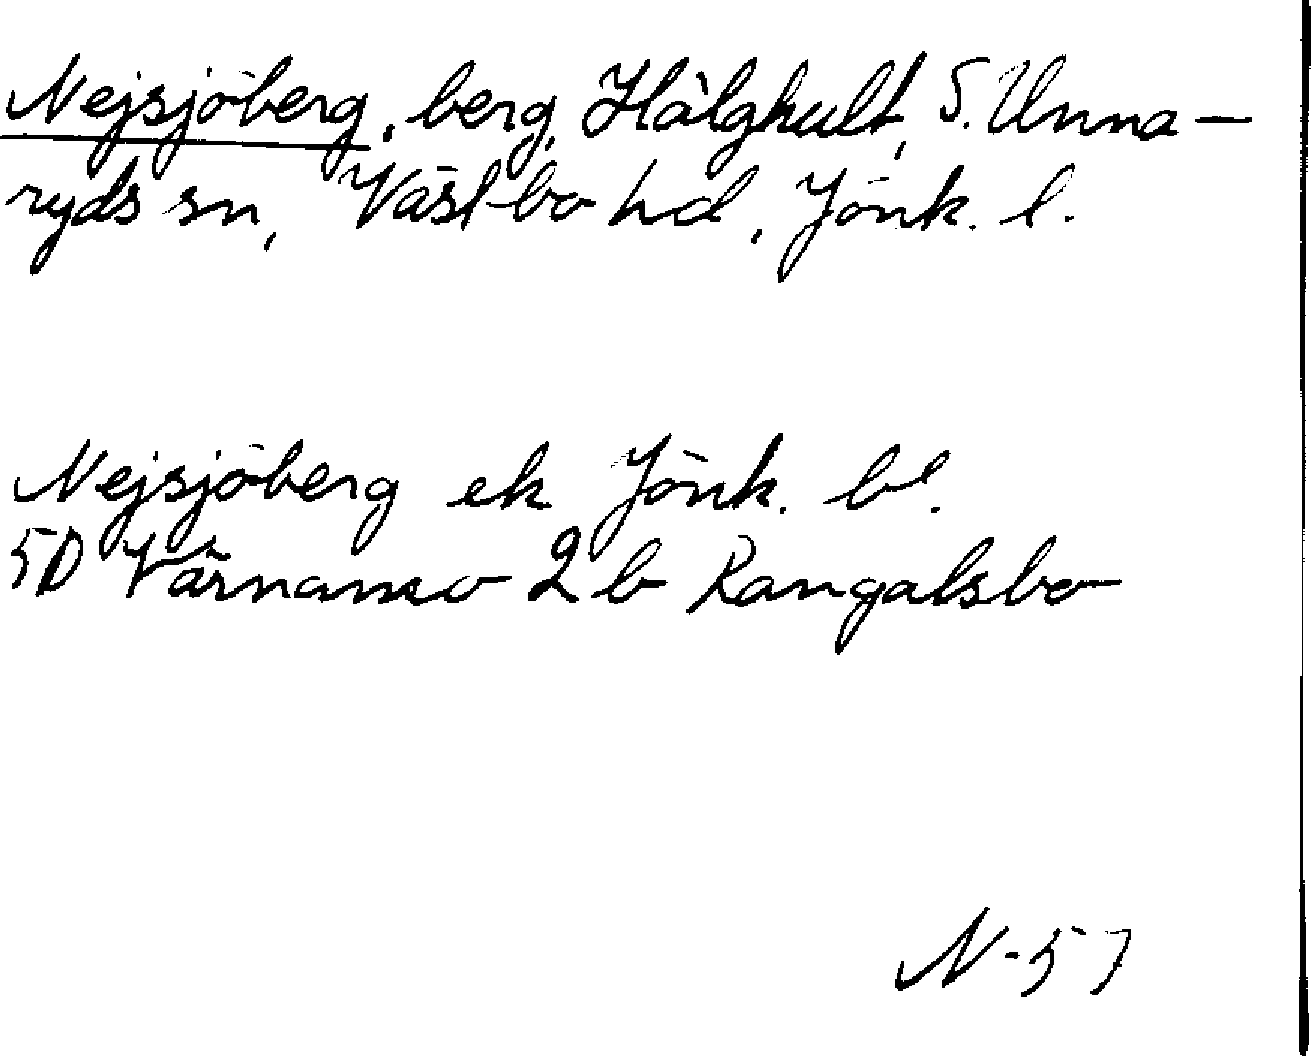 Nejsjöberg, berg, Hålghult, S. Unna-
ryds sn, Västbo hd, Jönk. l.
Nejsjöberg ek Jönk. bl.
5D Värnamo 2b Rangalsbo
N-57